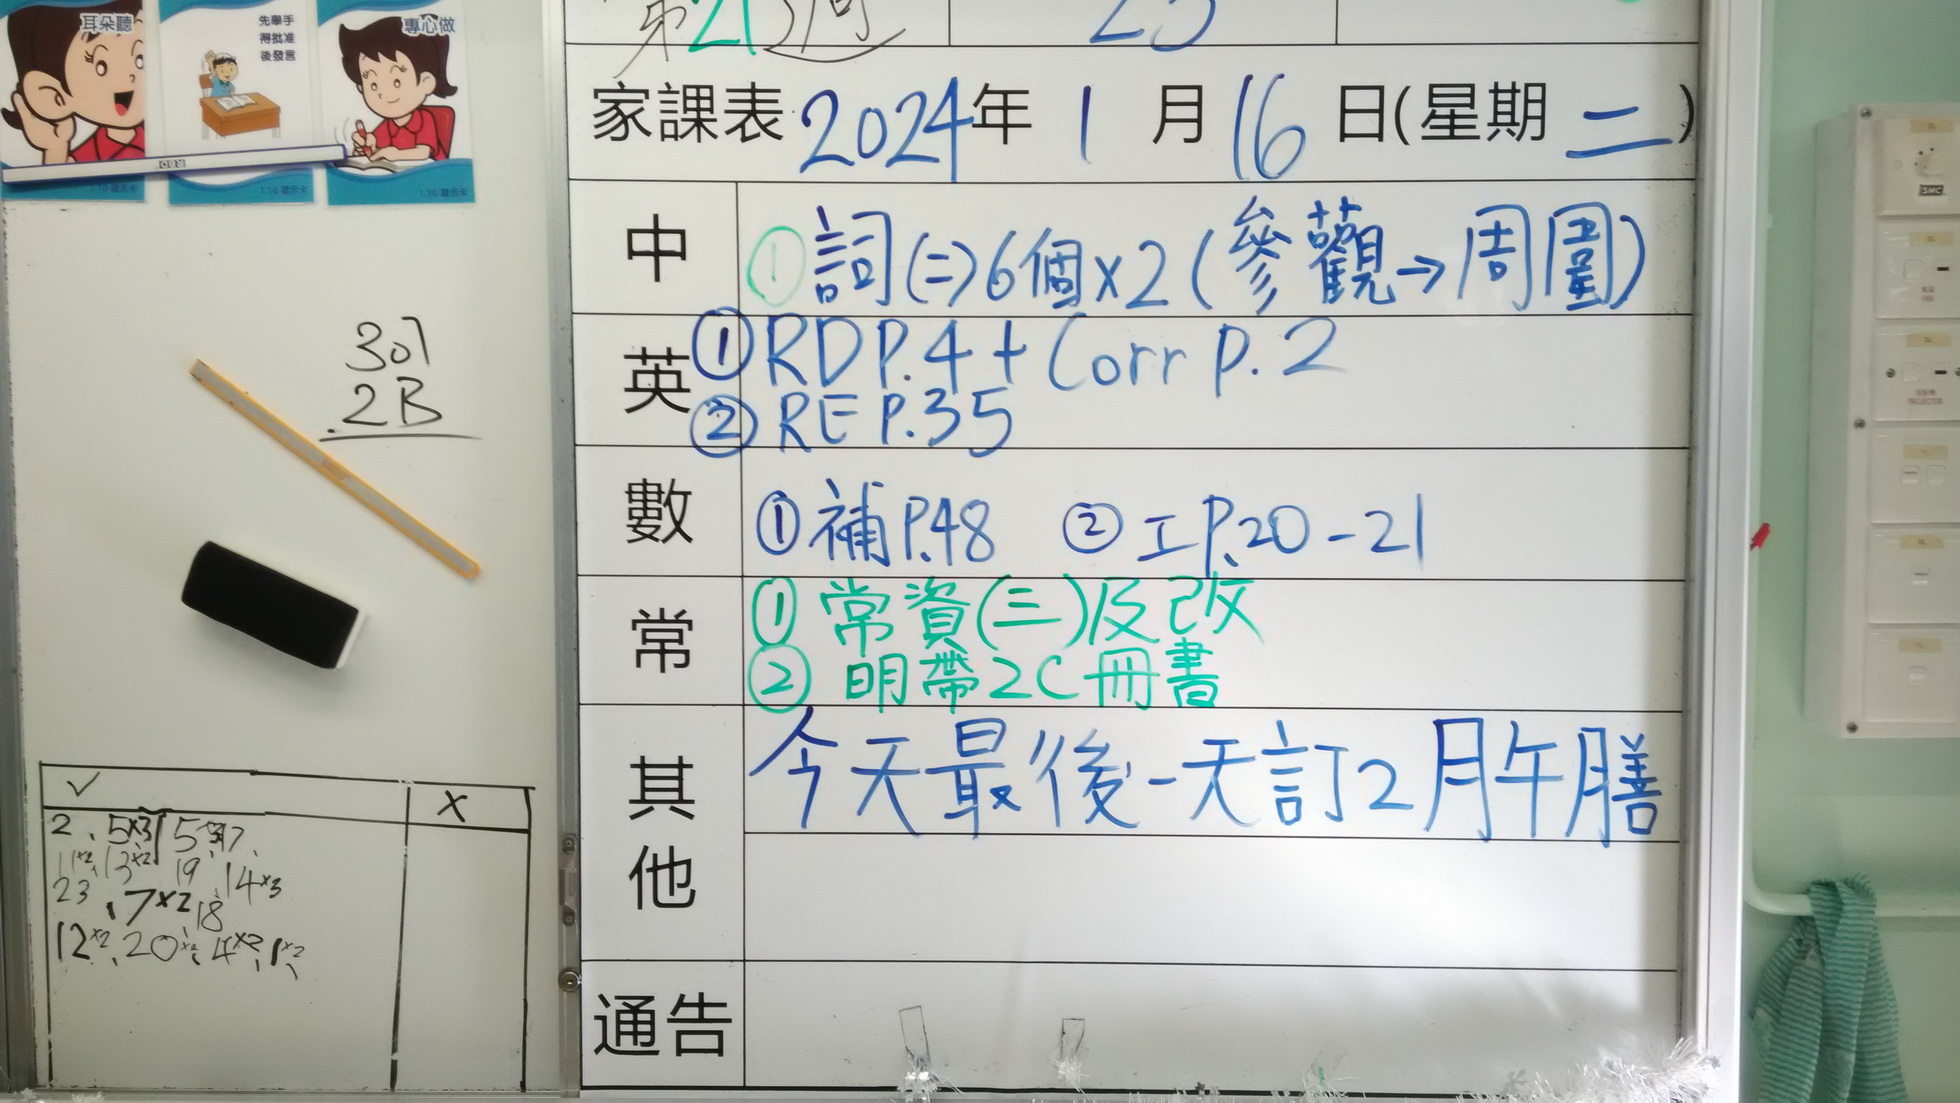 耳朵聽
先舉手
得批准
後發言
專心做
1.10 提示卡
1.10 提示卡
1.10 提示卡
301
2B
✓ X
2、5x3 5 37
11x2、13x2 19、14x3
23、7x2、18
12x2、20x2、4x2、1x2
第21週 23
家課表 2024年 1 月 16 日(星期 二)
中 ① 詞(二)6個x2(參觀→周圍)
英 ① RD P.4 + Corr p.2
② RE P.35
數 ① 補P.48 ② 工P.20-21
常 ① 常資(三)及改
② 明帶2C冊書
其他 今天最後一天訂2月午膳
通告
SMC